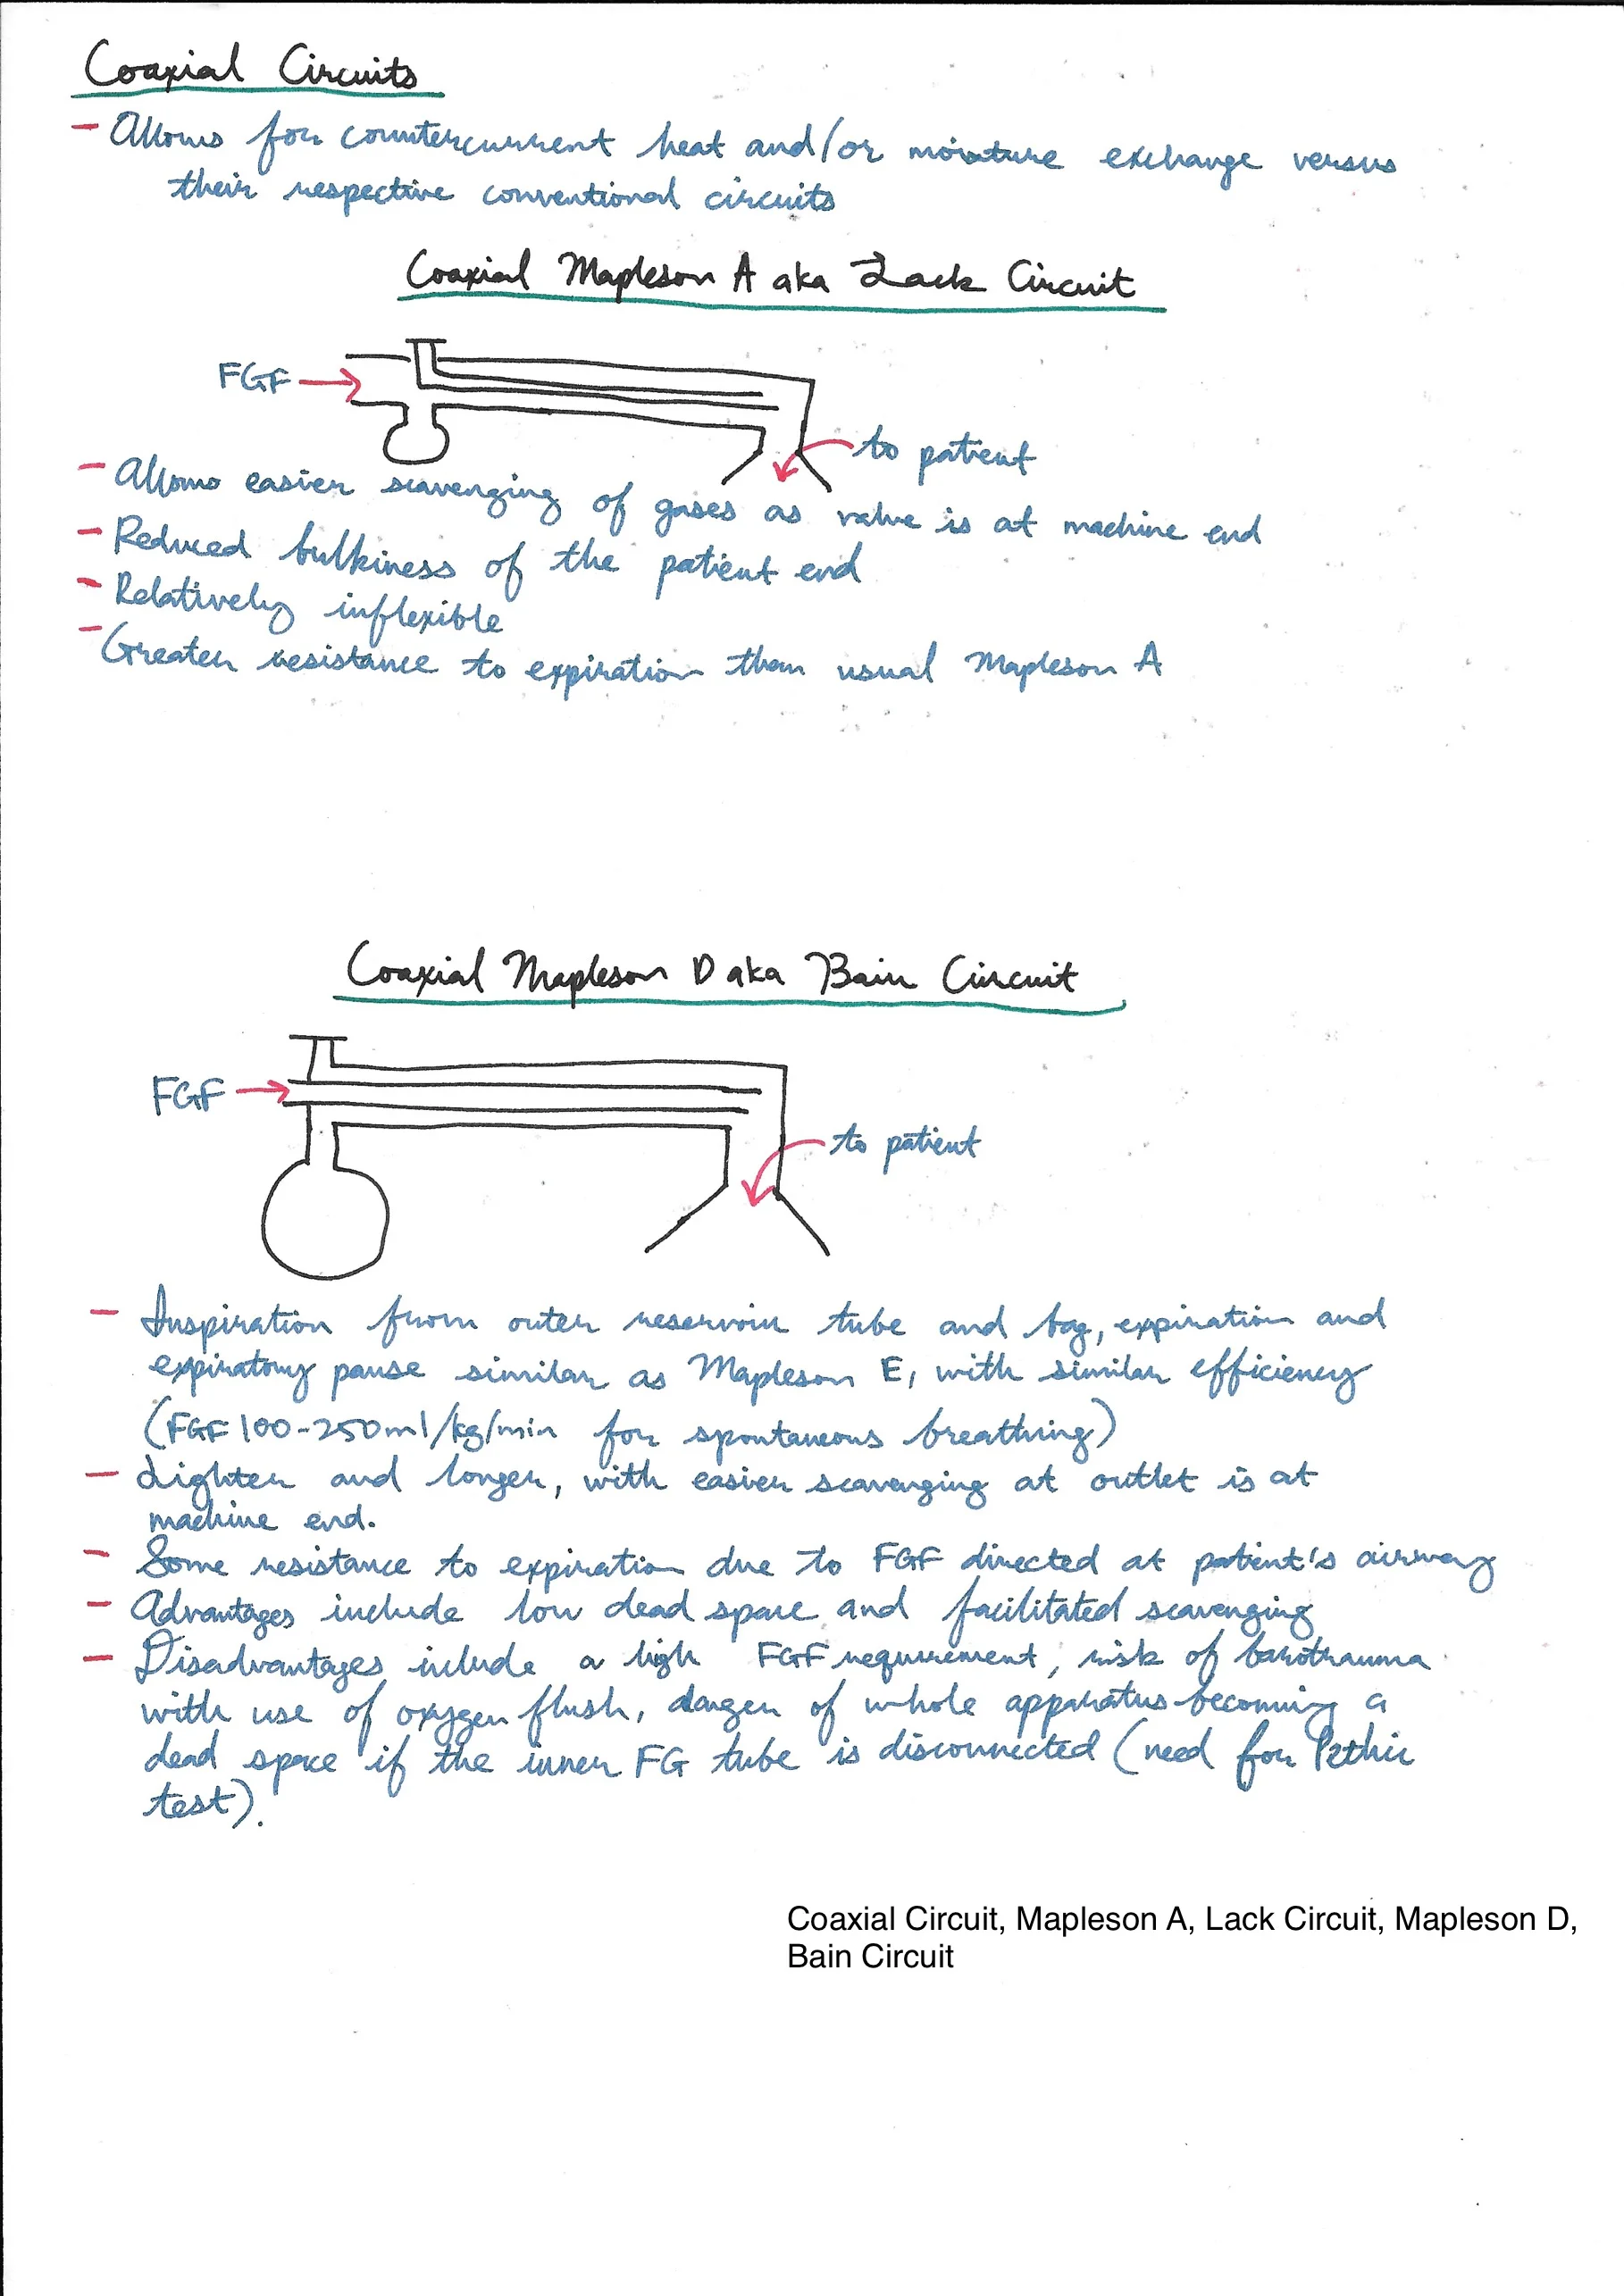 Coaxial Circuits
- Allows for countercurrent heat and/or moisture exchange versus
their respective conventional circuits
Coaxial Mapleson A aka Lack Circuit
FGF
to patient
- Allows easier scavenging of gases as valve is at machine end
- Reduced bulkiness of the patient end
- Relatively inflexible
- Greater resistance to expiration than usual Mapleson A
Coaxial Mapleson D aka Bain Circuit
FGF
to patient
- Inspiration from outer reservoir tube and bag, expiration and
expiratory pause similar as Mapleson E, with similar efficiency
(FGF 100-250ml/kg/min for spontaneous breathing)
- Lighter and longer, with easier scavenging at outlet is at
machine end.
- Some resistance to expiration due to FGF directed at patient's airway
- Advantages include low dead space and facilitated scavenging
- Disadvantages include a high FGF requirement, risk of barotrauma
with use of oxygen flush, danger of whole apparatus becoming a
dead space if the inner FG tube is disconnected (need for Pethic
test).
Coaxial Circuit, Mapleson A, Lack Circuit, Mapleson D,
Bain Circuit